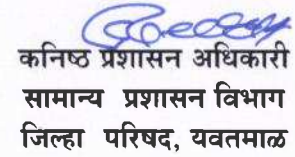 कनिष्ठ प्रशासन अधिकारी
सामान्य प्रशासन विभाग
जिल्हा परिषद, यवतमाळ